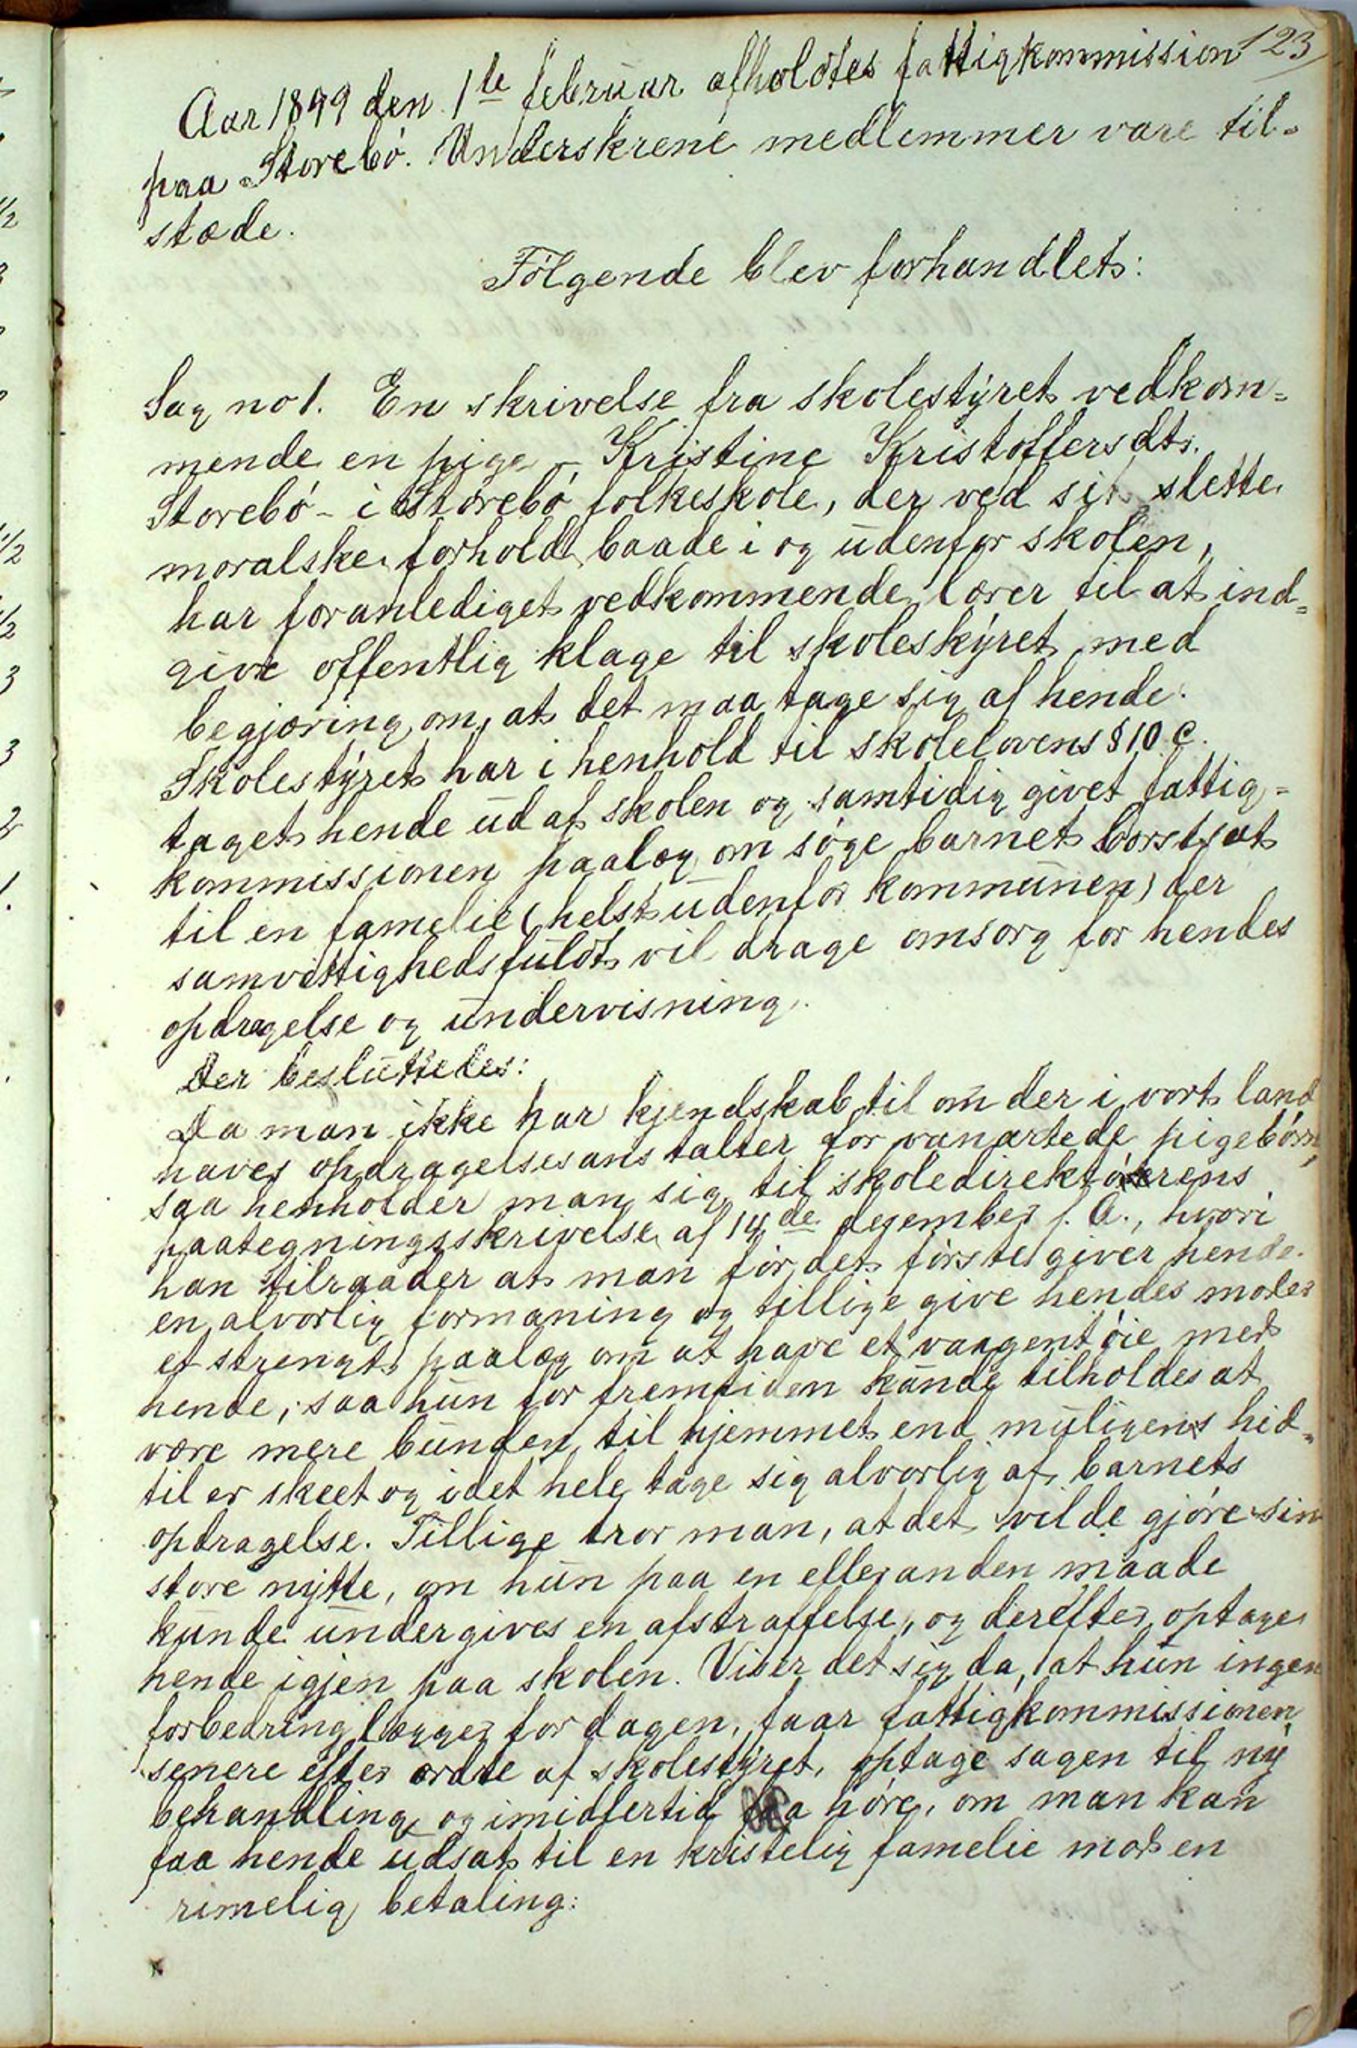 123
Aar 1899 den 1ste februar afholdtes fattigkommission
paa Storebø. Underskrene medlemmer vare til-
stæde.
Følgende blev forhandlet:
Sag no 1. En skrivelse fra skolestyret vedkom-
mende en pige - Kristine Kristoffersdt.
Storebø - i Storebø folkeskole, der ved sit slette
moralske forhold baade i og udenfor skolen,
har foranlediget vedkommende lærer til at ind-
give offentlig klage til skoleskyret med
begjæring om, at det maa tage sig af hende.
Skolestyret har i henhold til skolelovens § 10 c.
taget hende ud af skolen og samtidig givet fattig-
kommissionen paalæg om søge barnet borstsat
til en famelie (helst udenfor kommunen) der
samvittighedsfuldt vil drage omsorg for hendes
opdragelse og undervisning.
Der besluttedes:
Da man ikke har kjendskab til om der i vort land
haves opdragelsesanstalter for vanartede pigebørn,
saa henholder man sig til skoledirektørens
paategningsskrivelse af 14de desember f. A., hvori
han tilraader at man for det første giver hende
en alvorlig formaning og tillige give hendes moder
et strengt paalæg om at have et vaagent øie med
hende, saa hun for fremtiden kunde tilholdes at
være mere bunden til hjemmet end muligens hid-
til er skeet og i det hele tage sig alvorlig af barnets
opdragelse. Tillige tror man, at det vilde gjøre sin
store nytte, om hun paa en eller anden maade
kunde undergives en afstraffelse, og derefter optage
hende igjen paa skolen. Viser det sig da, at hun ingen
forbedring lægger for dagen, faar fattigkommissionen,
senere efter ordre af skolestyret, optage sagen til ny
behandling og imidlertid faa høre, om man kan
faa hende udsat til en kristelig famelie mod en
rimelig betaling: